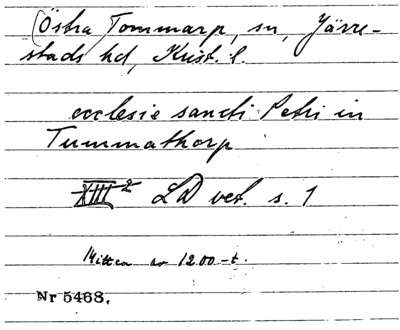 (Östra Tommarp, sn, Järre-
stads hd, Krist. l.
ecclesie sancti Petri in
Tummathorp
XIII 2 LD vet. s. 1
Mitten av 1200-t.
Nr 5463.